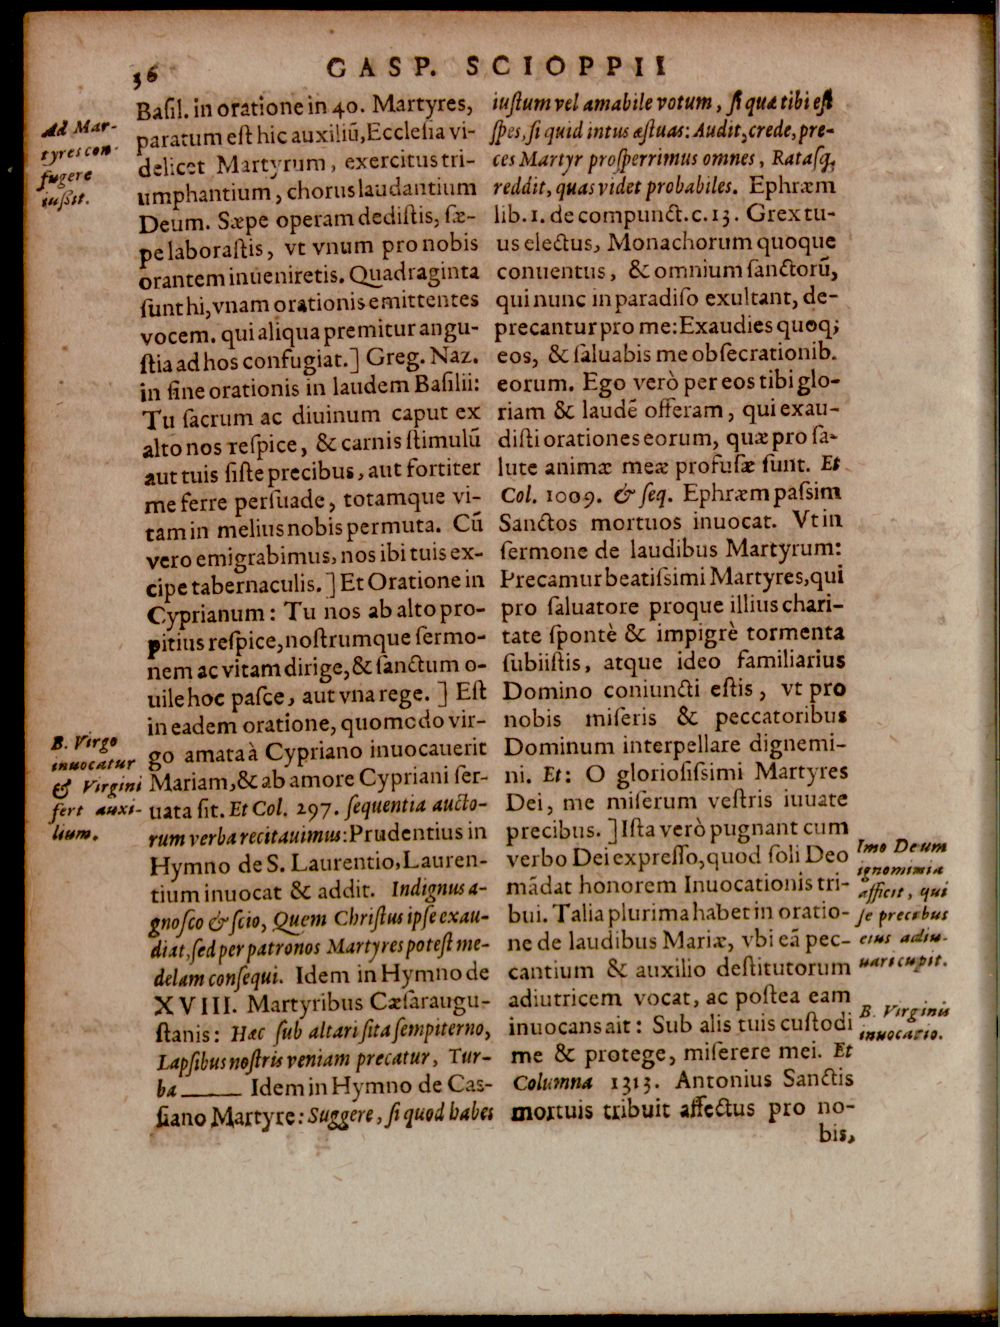 36
GASP. SCIOPPII
Ad Mar-
tyres con-
fugere
iussit.
Basil. in oratione in 40. Martyres,
paratum est hic auxiliū, Ecclesia vi-
delicet Martyrum, exercitus tri-
umphantium, chorus laudantium
Deum. Sæpe operam dedistis, sæ-
pe laborastis, vt vnum pro nobis
orantem inueniretis. Quadraginta
sunt hi, vnam orationis emittentes
vocem. qui aliqua premitur angu-
stia ad hos confugiat. ] Greg. Naz.
in fine orationis in laudem Basilii:
Tu sacrum ac diuinum caput ex
alto nos respice, & carnis stimulū
aut tuis siste precibus, aut fortiter
me ferre persuade, totamque vi-
tam in melius nobis permuta. Cū
vero emigrabimus, nos ibi tuis ex-
cipe tabernaculis. ] Et Oratione in
Cyprianum: Tu nos ab alto pro-
pitius respice, nostrumque sermo-
nem ac vitam dirige, & sanctum o-
uile hoc pasce, aut vna rege. ] Est
in eadem oratione, quomodo vir-
go amata à Cypriano inuocauerit
Mariam, & ab amore Cypriani ser-
uata sit. Et Col. 297. sequentia aucto-
rum verba recitauimus: Prudentius in
Hymno de S. Laurentio, Lauren-
tium inuocat & addit. Indignus a-
gnosco & scio, Quem Christus ipse exau-
diat, sed per patronos Martyres potest me-
delam consequi. Idem in Hymno de
XVIII. Martyribus Cæsaraugu-
stanis: Hæc sub altari sita sempiterno,
Lapsibus nostris veniam precatur, Tur-
ba ——— Idem in Hymno de Cas-
siano Martyre: Suggere, si quod habes
B. Virgo
inuocatur
& Virgini
fert auxi-
lium.
iustum vel amabile votum, si qua tibi est
spes, si quid intus æstuas: Audit, crede, pre-
ces Martyr prosperrimus omnes, Ratasq,
reddit, quas videt probabiles. Ephræm
lib. 1. de compunct. c. 13. Grex tu-
us electus, Monachorum quoque
conuentus, & omnium sanctorū,
qui nunc in paradiso exultant, de-
precantur pro me: Exaudies quoq;
eos, & saluabis me obsecrationib.
eorum. Ego verò per eos tibi glo-
riam & laudē offeram, qui exau-
disti orationes eorum, quæ pro sa-
lute animæ meæ profusæ sunt. Et
Col. 1009. & seq. Ephræm passim
Sanctos mortuos inuocat. Vt in
sermone de laudibus Martyrum:
Precamur beatissimi Martyres, qui
pro saluatore proque illius chari-
tate spontè & impigrè tormenta
subiistis, atque ideo familiarius
Domino coniuncti estis, vt pro
nobis miseris & peccatoribus
Dominum interpellare dignemi-
ni. Et: O gloriosissimi Martyres
Dei, me miserum vestris iuuate
precibus. ] Ista verò pugnant cum
verbo Dei expresso, quod soli Deo
mādat honorem Inuocationis tri-
bui. Talia plurima habet in oratio-
ne de laudibus Mariæ, vbi eā pec-
cantium & auxilio destitutorum
adiutricem vocat, ac postea eam
inuocans ait: Sub alis tuis custodi
me & protege, miserere mei. Et
Columna 1313. Antonius Sanctis
mortuis tribuit affectus pro no-
bis,
Imo Deum
ignominia
afficit, qui
se precibus
eius adiu-
uari cupit.
B. Virginis
inuocatio.